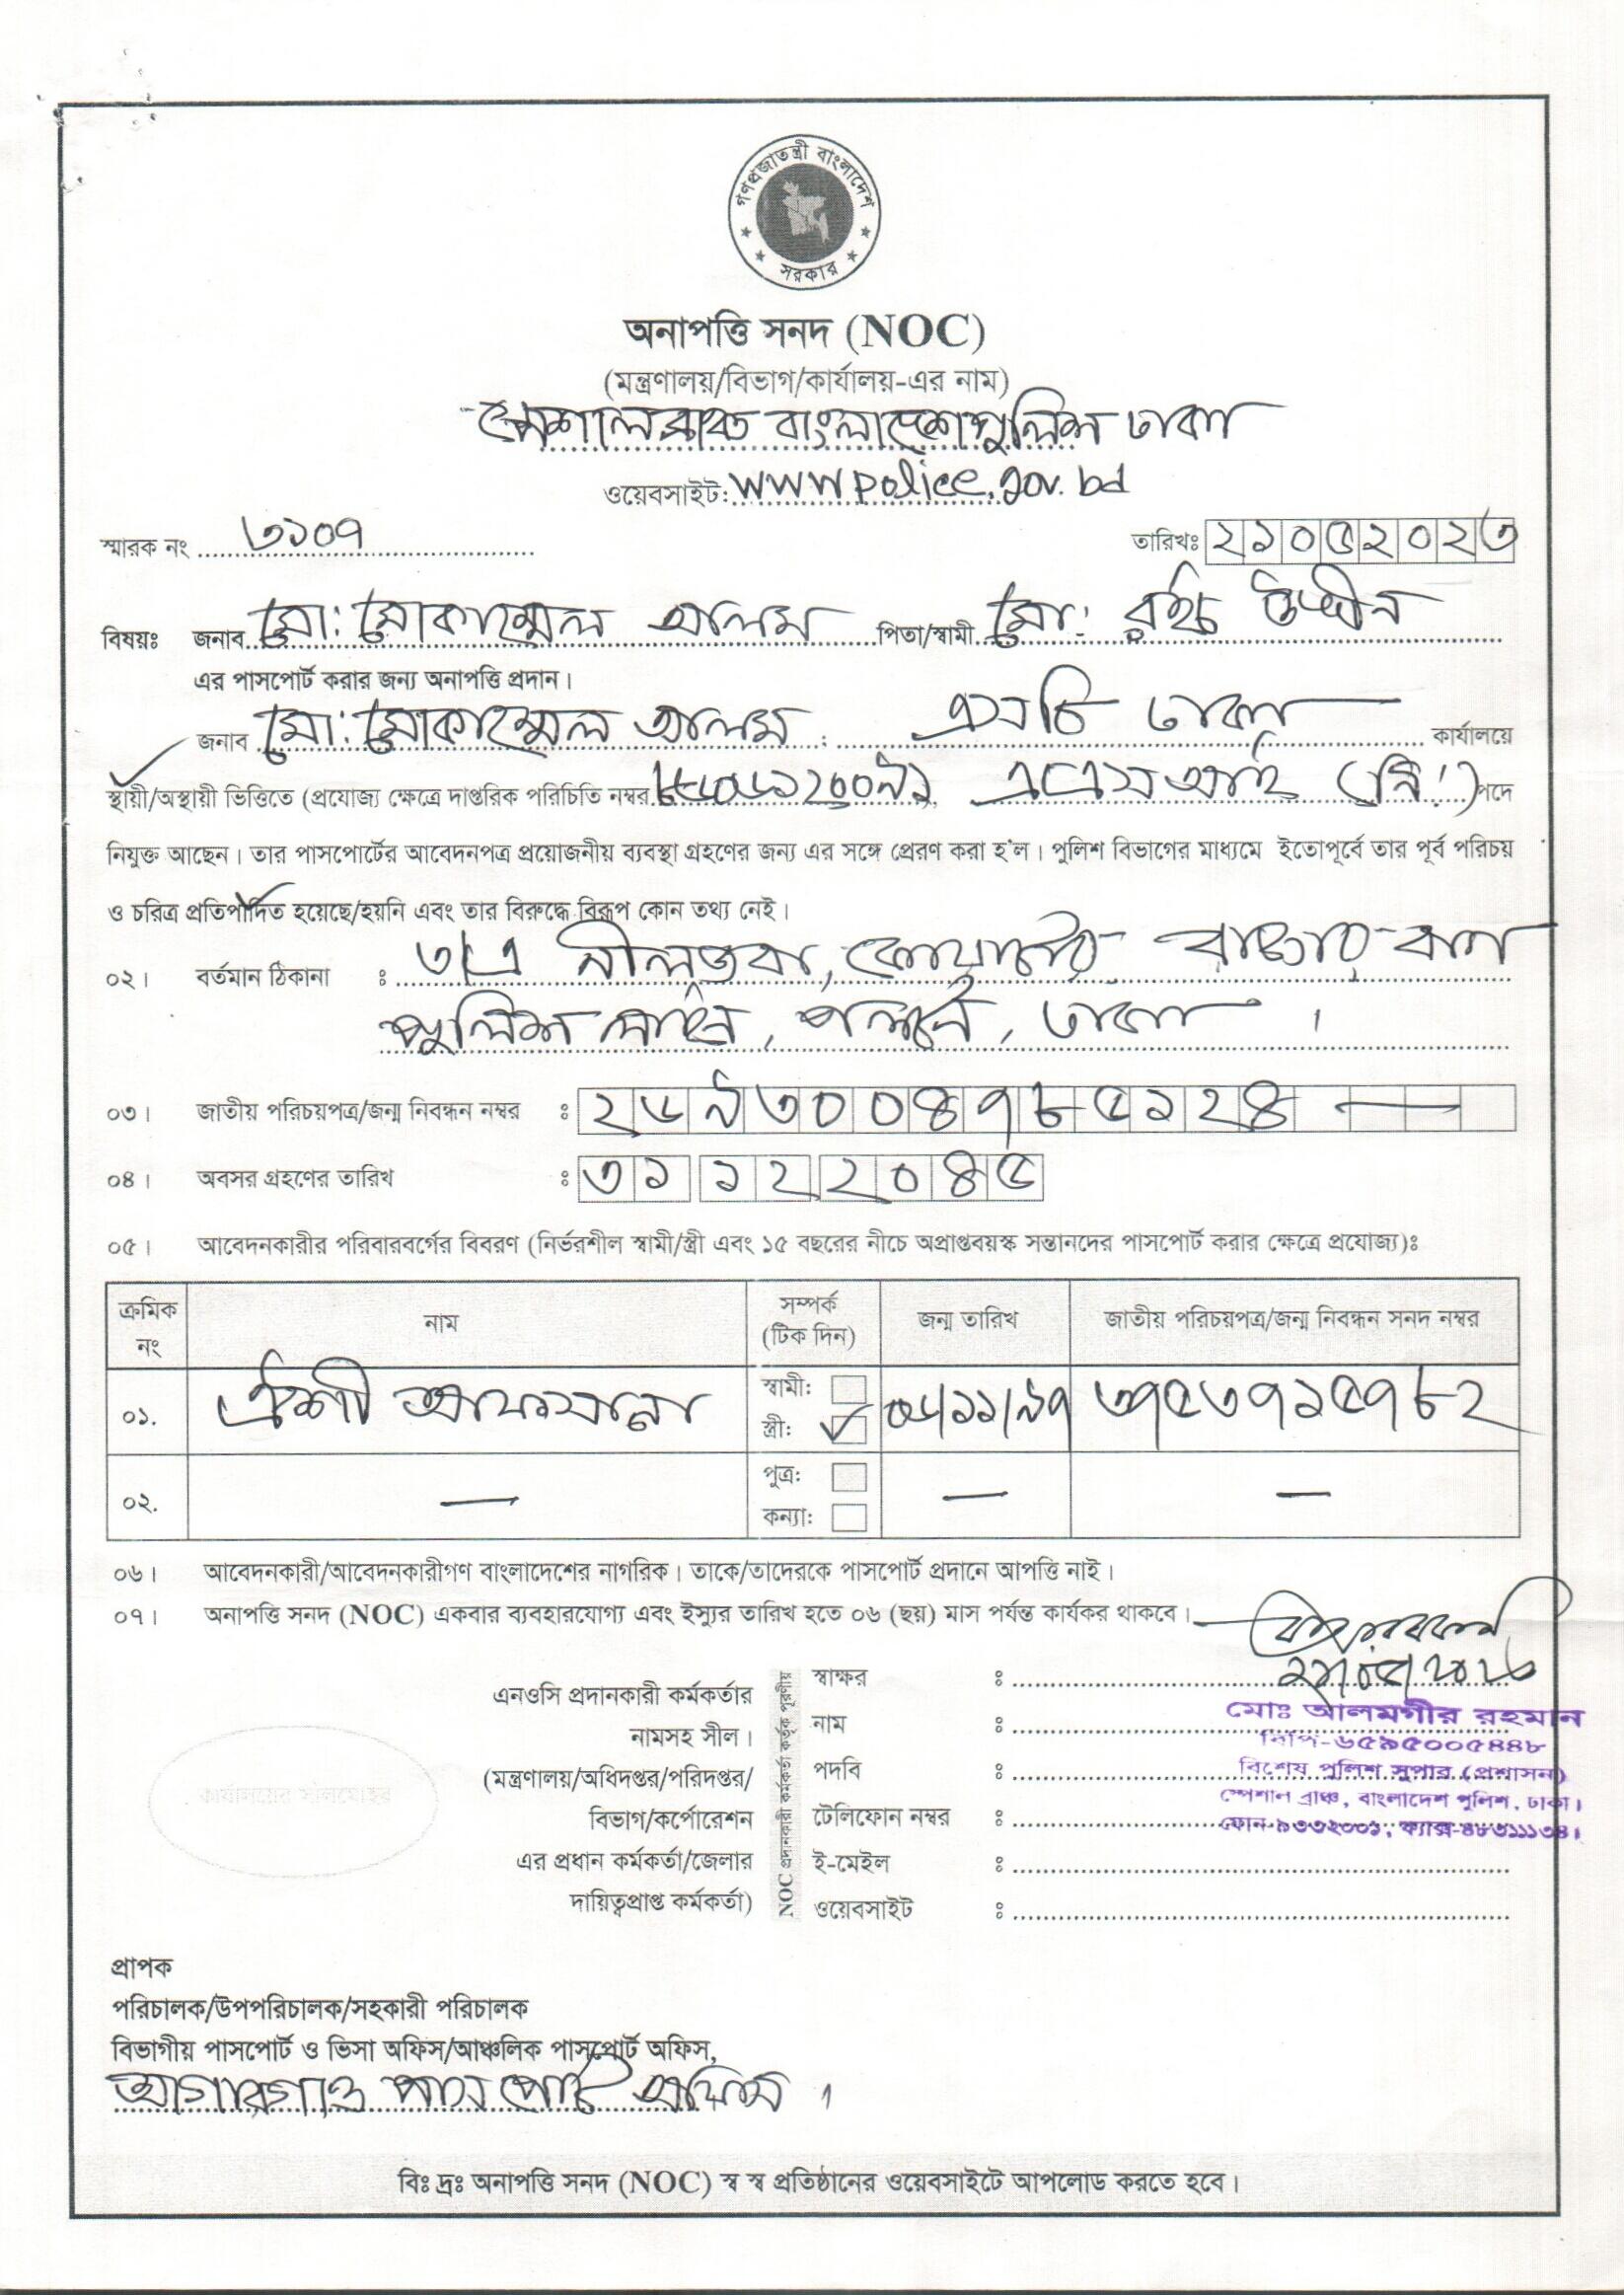 গণপ্রজাতন্ত্রী বাংলাদেশ
সরকার
অনাপত্তি সনদ (NOC)
(মন্ত্রণালয়/বিভাগ/কার্যালয়-এর নাম)
স্পেশাল ব্রাঞ্চ বাংলাদেশ পুলিশ ঢাকা
ওয়েবসাইট: www.police.gov.bd
স্মারক নং ৩১০৭ তারিখঃ ২১০৫২০২৩
বিষয়ঃ জনাব মো: মোকাম্মেল আলম পিতা/স্বামী মো: উদ্দীন
এর পাসপোর্ট করার জন্য অনাপত্তি প্রদান।
জনাব মো: মোকাম্মেল আলম এসবি ঢাকা কার্যালয়ে
স্থায়ী/অস্থায়ী ভিত্তিতে (প্রযোজ্য ক্ষেত্রে দাপ্তরিক পরিচিতি নম্বর এএসআই (নি:) পদে
নিযুক্ত আছেন। তার পাসপোর্টের আবেদনপত্র প্রয়োজনীয় ব্যবস্থা গ্রহণের জন্য এর সঙ্গে প্রেরণ করা হ'ল। পুলিশ বিভাগের মাধ্যমে ইতোপূর্বে তার পূর্ব পরিচয়
ও চরিত্র প্রতিপাদিত হয়েছে/হয়নি এবং তার বিরুদ্ধে বিরূপ কোন তথ্য নেই।
০২। বর্তমান ঠিকানা : ৩/এ নীলপদ্ম, কোয়ার্টার রাজারবাগ
পুলিশ লাইন, পল্টন, ঢাকা।
০৩। জাতীয় পরিচয়পত্র/জন্ম নিবন্ধন নম্বর : ২৬৯৩০০৪৭৮৫১২৪ —
০৪। অবসর গ্রহণের তারিখ : ৩১ ১২ ২০৪৫
০৫। আবেদনকারীর পরিবারবর্গের বিবরণ (নির্ভরশীল স্বামী/স্ত্রী এবং ১৫ বছরের নীচে অপ্রাপ্তবয়স্ক সন্তানদের পাসপোর্ট করার ক্ষেত্রে প্রযোজ্য)ঃ
ক্রমিক নং নাম সম্পর্ক (টিক দিন) জন্ম তারিখ জাতীয় পরিচয়পত্র/জন্ম নিবন্ধন সনদ নম্বর
০১. ঐশী আফসানা স্বামী: স্ত্রী: ✓ ০৬/১১/৯৭ ৩৭৫৩৭১৫৭৮২
০২. — পুত্র: কন্যা: — —
০৬। আবেদনকারী/আবেদনকারীগণ বাংলাদেশের নাগরিক। তাকে/তাদেরকে পাসপোর্ট প্রদানে আপত্তি নাই।
০৭। অনাপত্তি সনদ (NOC) একবার ব্যবহারযোগ্য এবং ইস্যুর তারিখ হতে ০৬ (ছয়) মাস পর্যন্ত কার্যকর থাকবে।
এনওসি প্রদানকারী কর্মকর্তার
নামসহ সীল।
(মন্ত্রণালয়/অধিদপ্তর/পরিদপ্তর/
বিভাগ/কর্পোরেশন
এর প্রধান কর্মকর্তা/জেলার
দায়িত্বপ্রাপ্ত কর্মকর্তা)
কার্যালয়ের সীলমোহর
NOC প্রদানকারী কর্মকর্তা কর্তৃক পূরণীয়
স্বাক্ষর : ২১/০৫/২০২৩
নাম : মোঃ আলমগীর রহমান
বিপি-৬৫৯৫০০৫৪৪৮
পদবি : বিশেষ পুলিশ সুপার (প্রশাসন)
স্পেশাল ব্রাঞ্চ, বাংলাদেশ পুলিশ, ঢাকা।
টেলিফোন নম্বর : ফোন-৯৩৩২০০১, ফ্যাক্স-৪৮৩১১১৩৪।
ই-মেইল :
ওয়েবসাইট :
প্রাপক
পরিচালক/উপপরিচালক/সহকারী পরিচালক
বিভাগীয় পাসপোর্ট ও ভিসা অফিস/আঞ্চলিক পাসপোর্ট অফিস,
আগারগাঁও পাসপোর্ট অফিস।
বিঃ দ্রঃ অনাপত্তি সনদ (NOC) স্ব স্ব প্রতিষ্ঠানের ওয়েবসাইটে আপলোড করতে হবে।